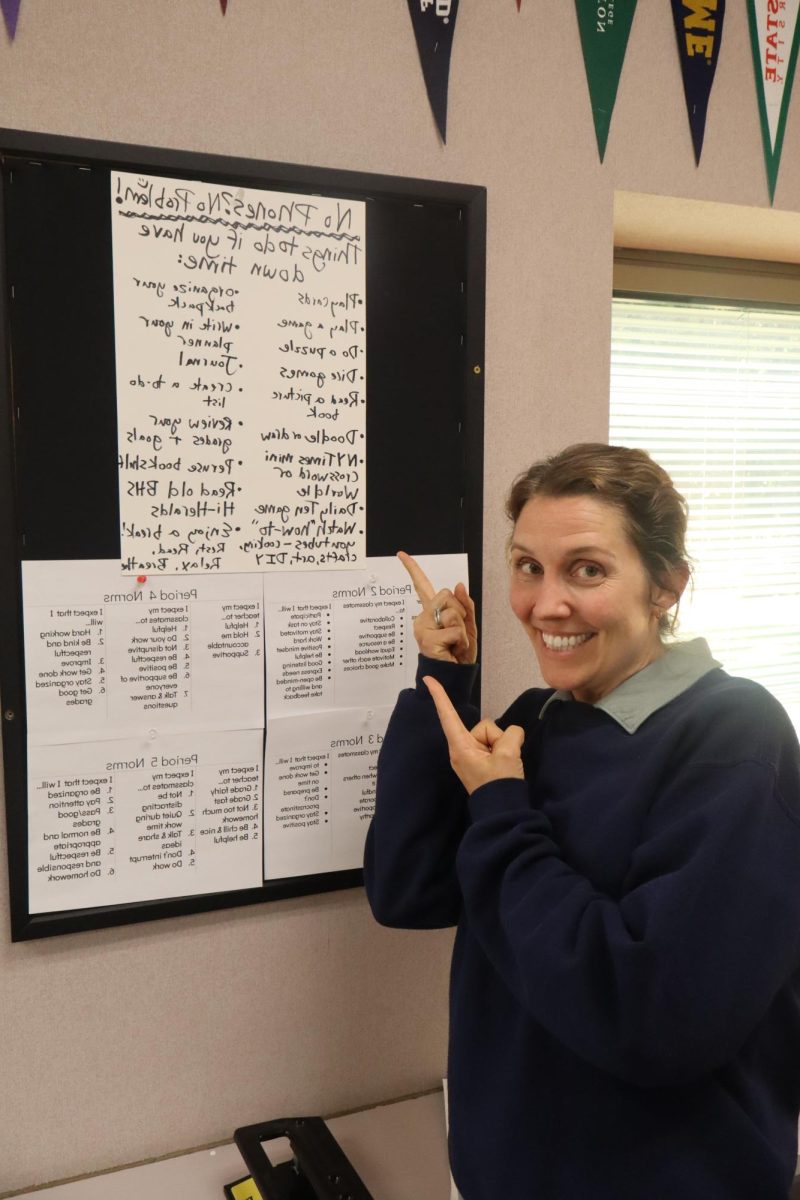 No Phones? No Problem!
Things to do if you have
down time:
• Play cards
• Play a game
• Do a puzzle
• Dice games
• Read a picture
book
• Doodle or draw
• NYTimes mini
crossword or
Worldle
• Daily Ten game
• Watch "how-to"
youtubes - cooking,
crafts, art, DIY
• organize your
backpack
• Write in your
planner
• Journal
• create a to-do
list
• Review your
grades + goals
• Peruse bookshelf
• Read old BHS
Hi-Heralds
• Enjoy a break!
Rest. Read.
Relax. Breathe
Period 2 Norms
I expect classmates
to...
Collaborative
Respect
Be supportive
Be a resource
Equal workload
Motivate each other
Make good choices
I expect that I
will...
• Participate
• Stay on task
• Stay motivated
• Work hard
• Positive mindset
• Be helpful
• Good listening
• Express needs
• Be open-minded
and willing to
take feedback
Period 4 Norms
I expect my
teacher to...
1. Helpful
2. Hold me
accountable
3. Supportive
I expect my
classmates to...
1. Helpful
2. Do your work
3. Not disruptive
4. Be respectful
5. Be positive
6. Be supportive of
everyone
7. Talk & answer
questions
I expect that I
will...
1. Hard working
2. Be kind and
respectful
3. Improve
4. Get work done
5. Stay organized
6. Get good
grades
3 Norms
I expect that I
will...
• to improve
• Get work done
on time
• Be prepared
• Don't
procrastinate
• Stay organized
• Stay positive
Period 5 Norms
I expect my
teacher to...
1. Grade fairly
2. Grade fast
3. Not too much
homework
4. Be chill & nice
5. Be helpful
I expect my
classmates to...
1. Not be
distracting
2. Quiet during
work time
3. Talk & share
ideas
4. Don't interrupt
5. Do work
I expect that I
will...
1. Be organized
2. Pay attention
3. Pass/good
grades
4. Be normal and
appropriate
5. Be respectful
and responsible
6. Do homework
STATE